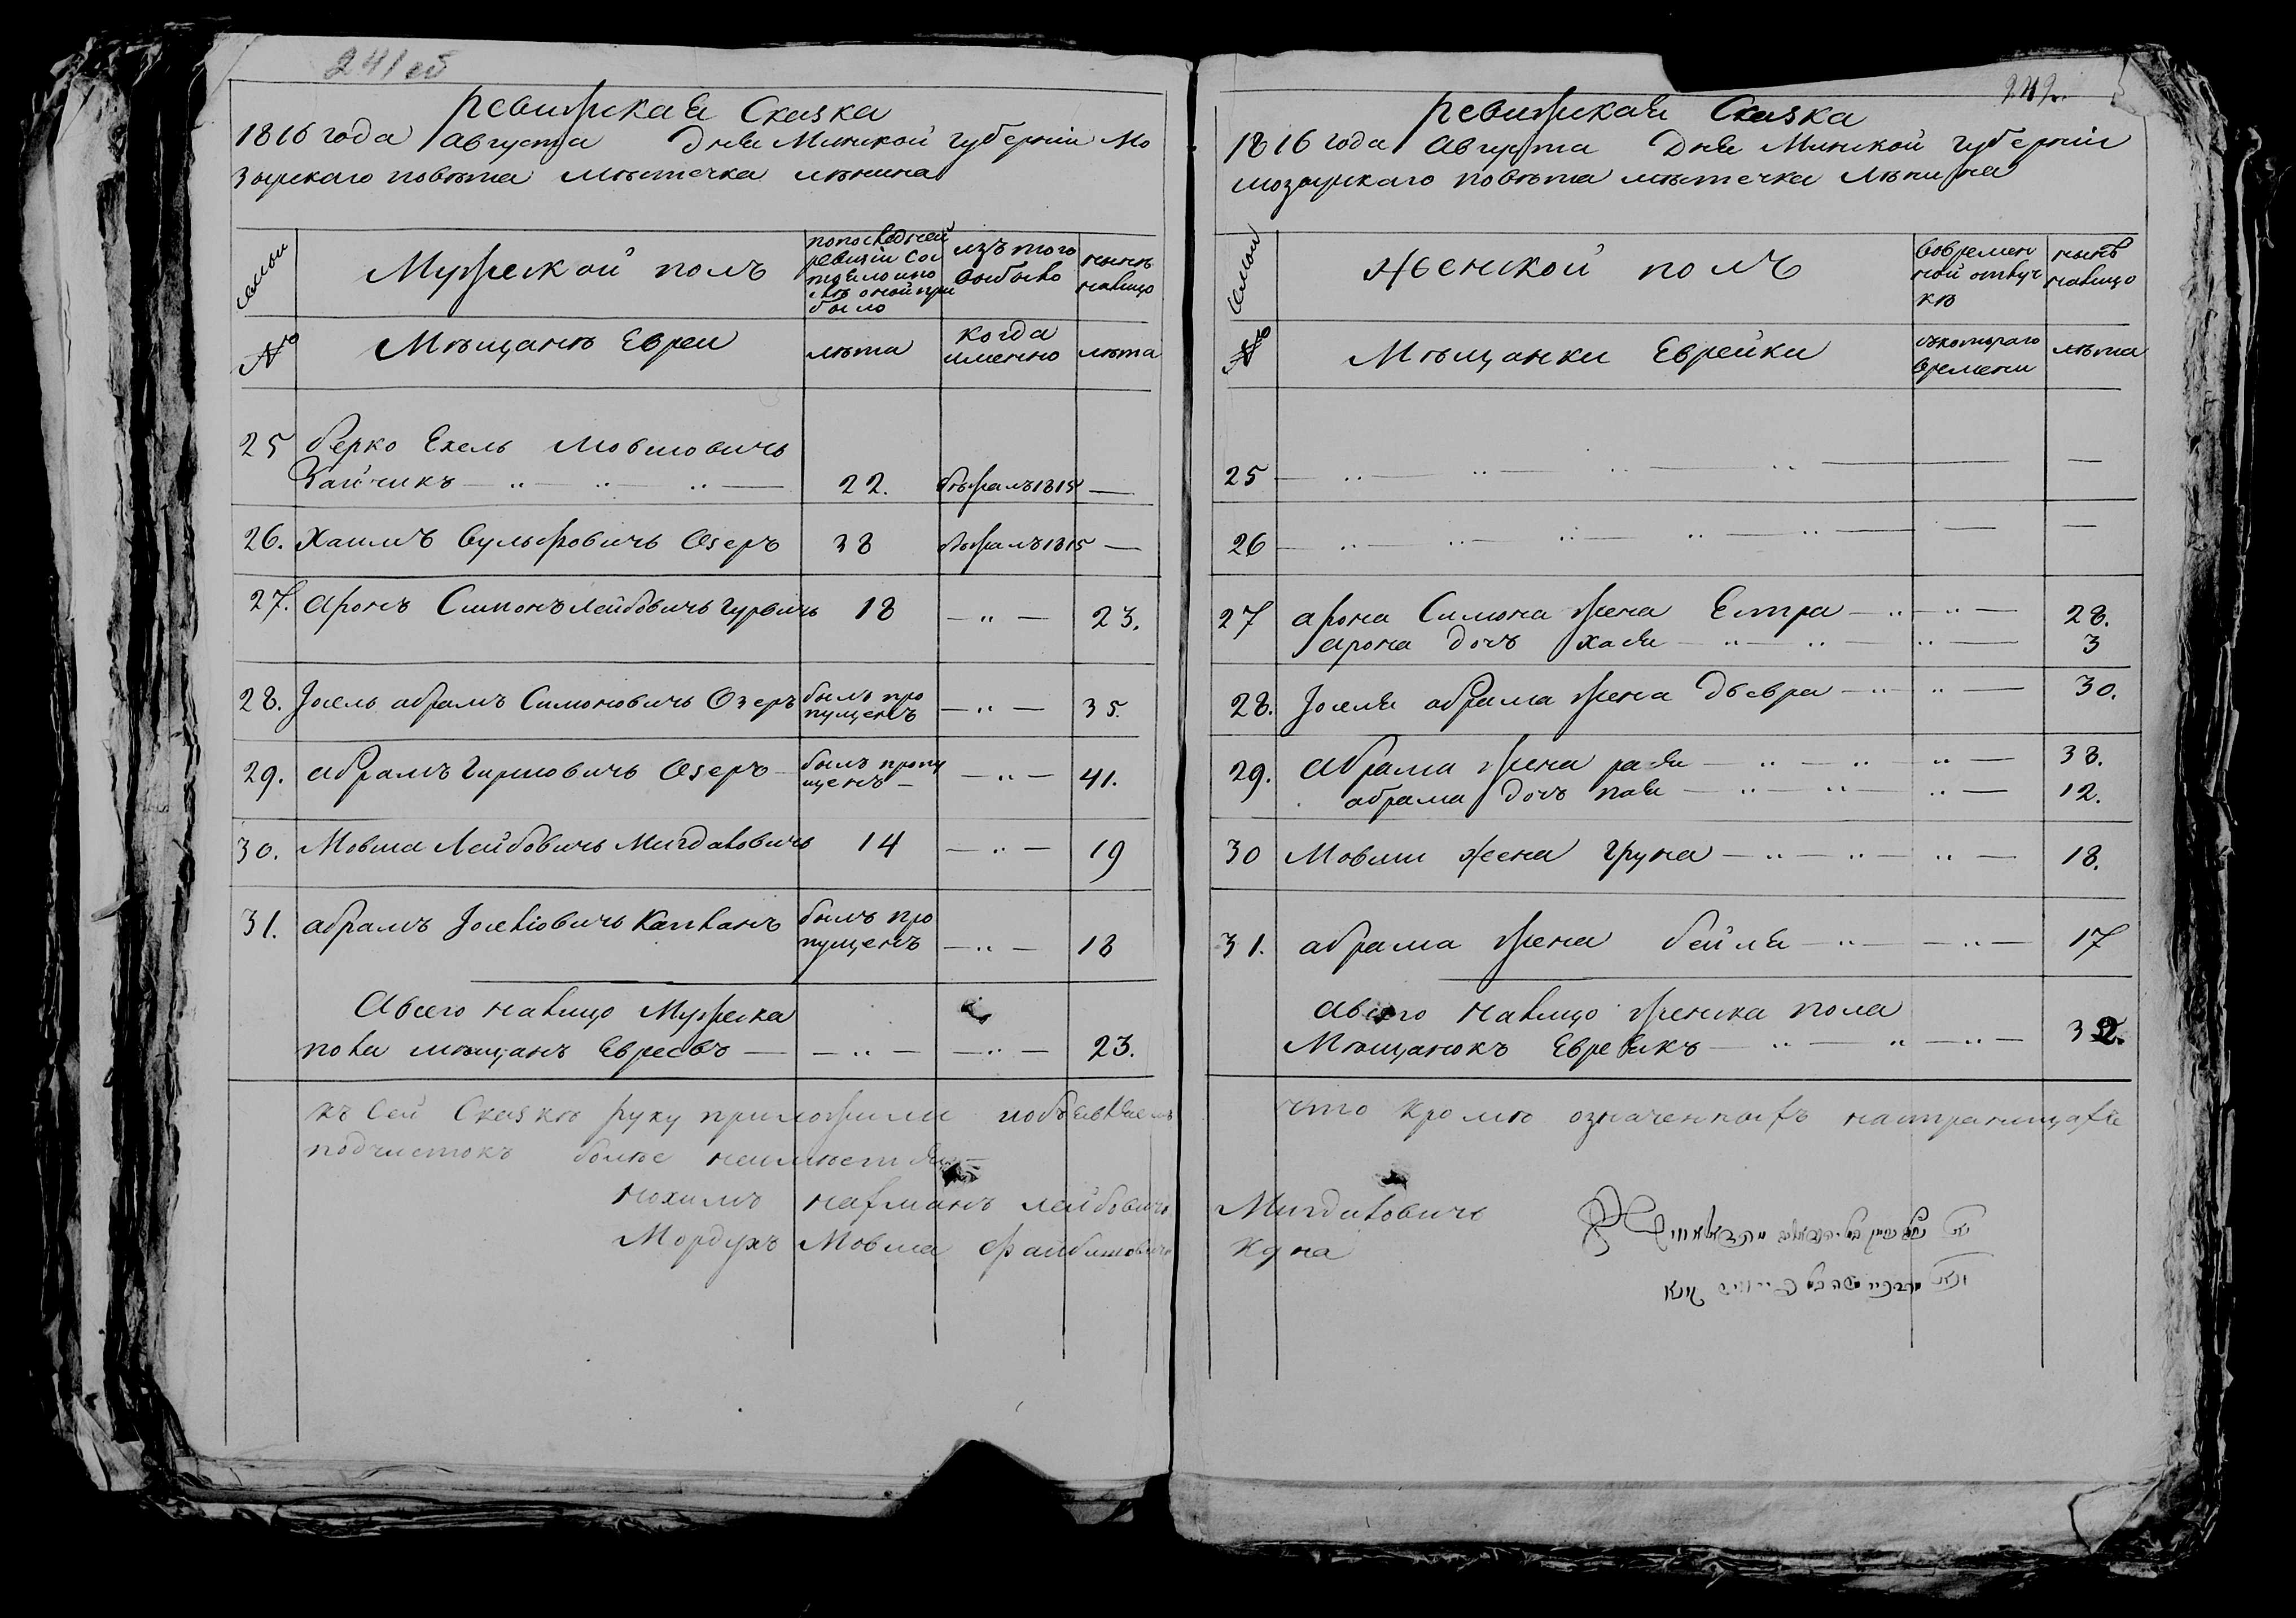 241 об
Ревижская Сказка
1816 года Августа Дня Минской губерніи Мо
зырскаго повѣта мѣстечка Лѣнина
семьи
Мужеской полъ
попоследней
ревизіи сос
тояло и по
слѣ оной при
было
изъ того
выбыло
нынѣ
налицо
№
Мѣщанѣ Евреи
лѣта
когда
именно
лѣта
25 Берко Ехель Мовшовичъ
Зайчикъ — „ — „ — „ — 22. бѣжалъ 1815 —
26. Хаимъ Вульфовичъ Озеръ 38 бѣжалъ 1815 —
27. Аронъ Симонъ Лейбовичъ Гурвичъ 18 — „ — 23.
28. Іосель абрамъ Симоновичъ Озеръ былъ про
пущенъ — „ — 35.
29. Абрамъ Гиршовичъ Озеръ былъ пропу
щенъ — — „ — 41.
30. Мовша Лейбовичъ Мигдаловичъ 14 — „ — 19
31. абрамъ Іоселіовичъ Капланъ былъ про
пущенъ — „ — 18
Авсего налицо Мужеска
пола мѣщанъ Евреевъ — — „ — — „ — 23.
къ Сей Сказкѣ руку приложили
подчистокъ болѣе неимѣется
Нохимъ Нахманъ Лейбовичъ
Мордухъ Мовша Файбишовичъ
242.
Ревижская Сказка
1816 года Августа Дня Минской губерніи
мозырскаго повѣта мѣстечка Лѣнина
семьи
Женской полъ
Вовремен
ной отлуч
кѣ
нынѣ
налицо
№
Мѣщанки Еврейки
съкотораго
времени
лѣта
25 — „ — „ — „ — „ — — —
26 — „ — „ — „ — „ — „ — — —
27 арона Симона жена Естра — „ — „ — 28.
арона дочъ хая — „ — „ — „ — 3
28. Іоселя абрама жена Двера — „ — „ — 30.
29. Абрама жена рая — „ — „ — „ — 38.
абрама дочъ пая — „ — „ — „ — 12.
30 Мовши жена Груна — „ — „ — „ — 18.
31. абрама жена бейля — „ — — „ — 17
Авсего налицо женска пола
Мѣщанокъ Евреекъ — „ — „ — „ — 32.
что кромѣ означенныхъ настраницахъ
Мигдаловичъ
Куна